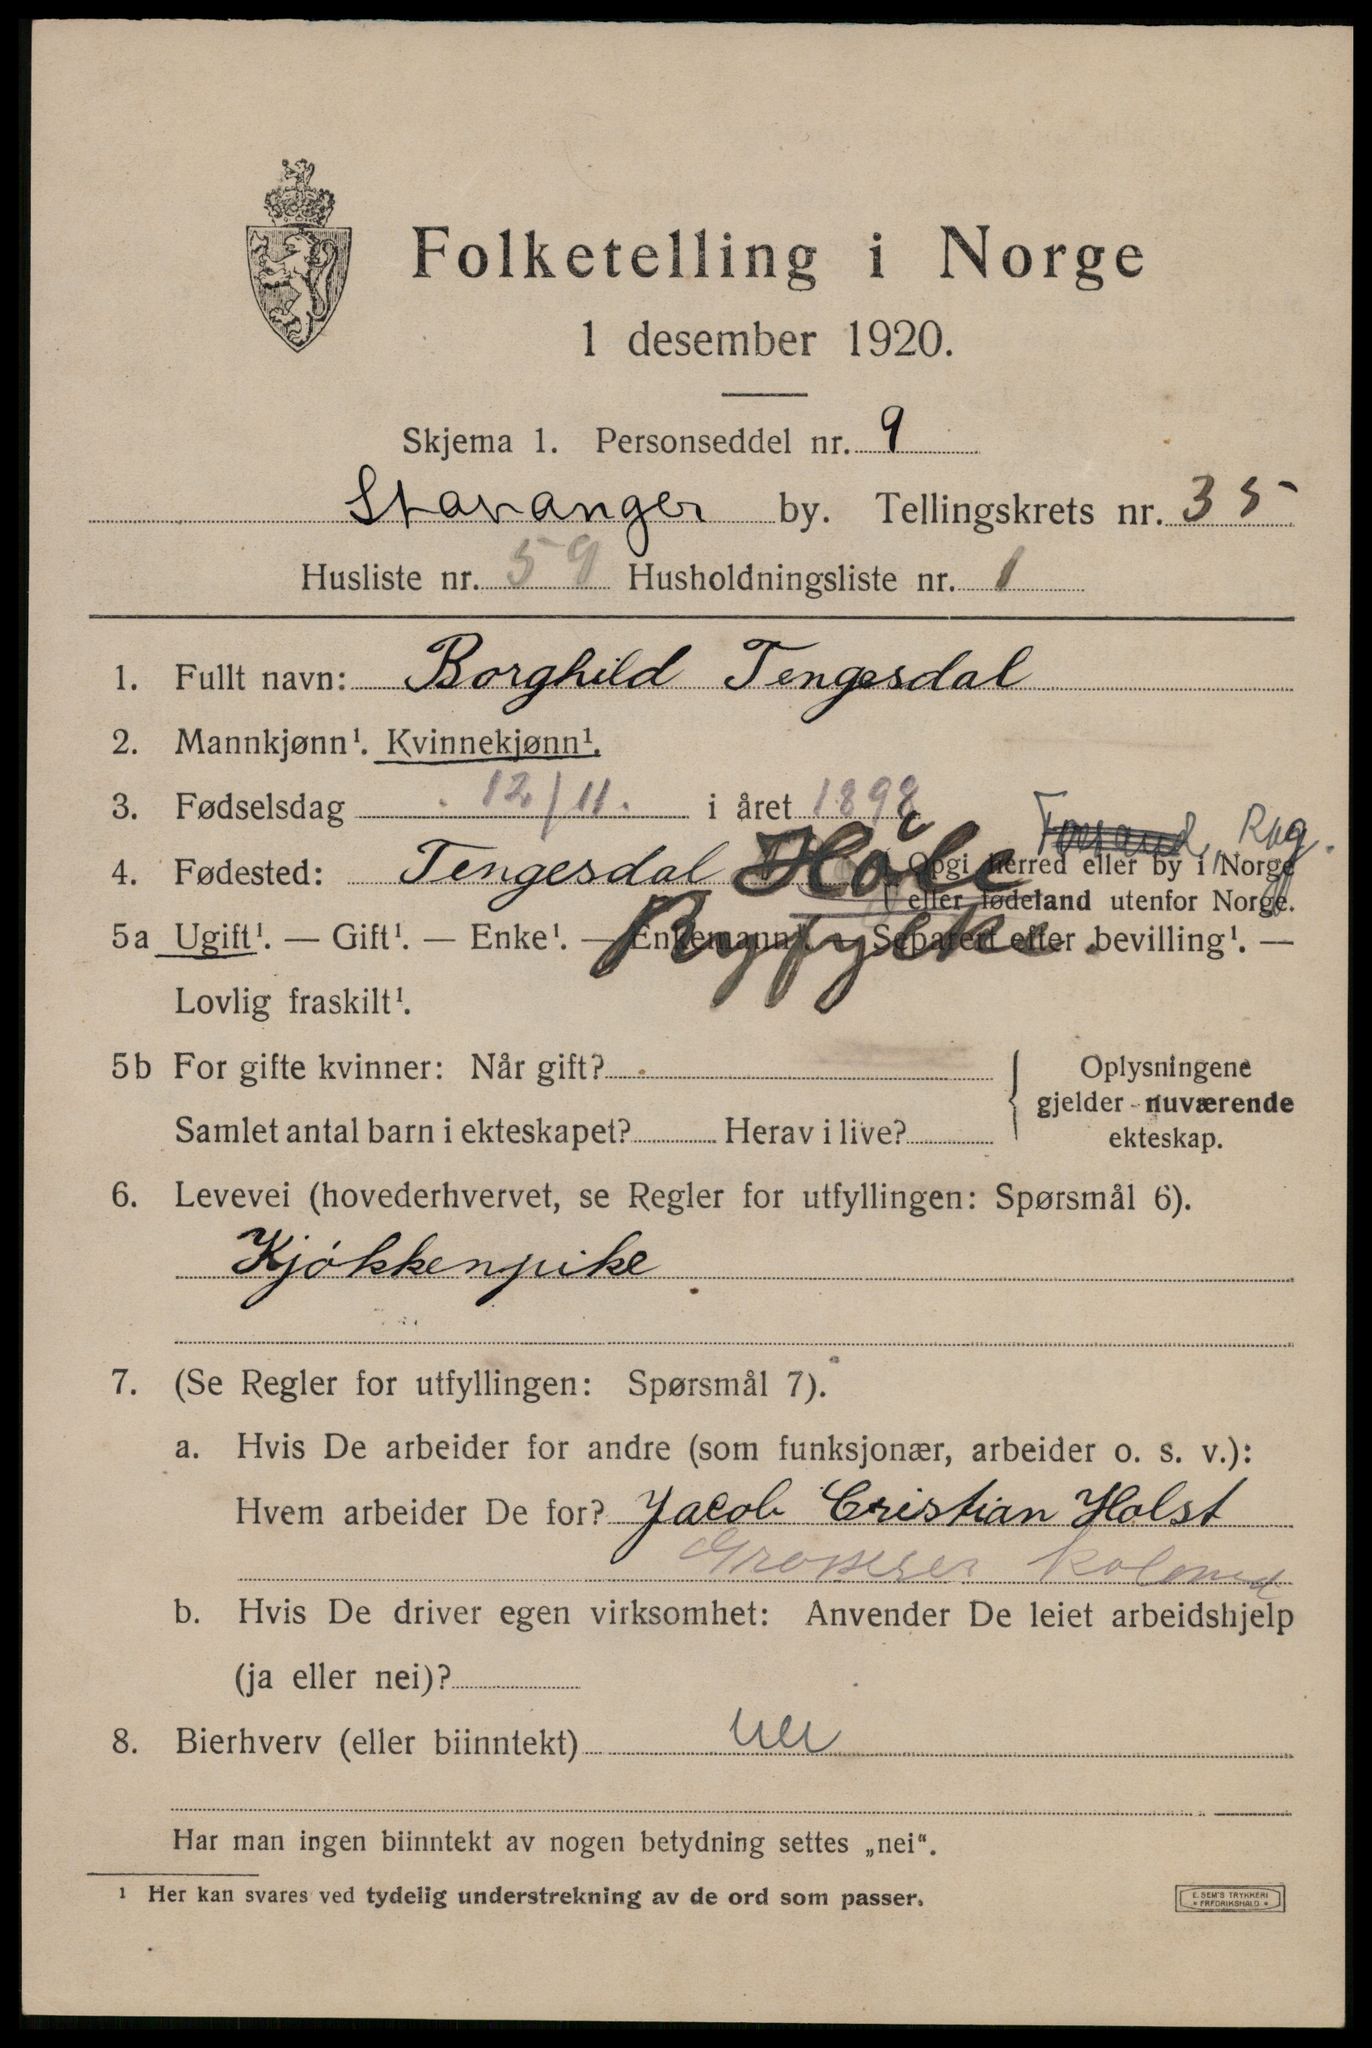 Folketelling i Norge
1 desember 1920.
Skjema 1. Personseddel nr. 9
Stavanger by. Tellingskrets nr. 35
Husliste nr. 59 Husholdningsliste nr. 1
1. Fullt navn: Borghild Tengesdal
2. Mannkjønn¹. Kvinnekjønn¹.
3. Fødselsdag 12/11. i året 1898
Forsand, Rog.
4. Fødested: Tengesdal Høle Opgi herred eller by i Norge
eller fødeland utenfor Norge.
Ryfylke.
5a Ugift¹. — Gift¹. — Enke¹. — Enkemann¹. — Separert efter bevilling¹. —
Lovlig fraskilt¹.
5b For gifte kvinner: Når gift? Oplysningene
gjelder nuværende
Samlet antal barn i ekteskapet? Herav i live? ekteskap.
6. Levevei (hovederhvervet, se Regler for utfyllingen: Spørsmål 6).
Kjøkkenpike
7. (Se Regler for utfyllingen: Spørsmål 7).
a. Hvis De arbeider for andre (som funksjonær, arbeider o. s. v.):
Hvem arbeider De for? Jacob Cristian Holst
Grosserer
b. Hvis De driver egen virksomhet: Anvender De leiet arbeidshjelp
(ja eller nei)?
8. Bierhverv (eller biinntekt) nei
Har man ingen biinntekt av nogen betydning settes „nei“.
¹ Her kan svares ved tydelig understrekning av de ord som passer.
E. SEM'S TRYKKERI
• FREDRIKSHALD •